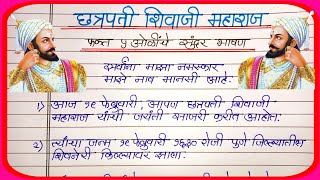 छत्रपती शिवाजी महाराज
फक्त ५ ओळींचे सुंदर भाषण
सर्वांना माझा नमस्कार
माझे नाव मानसी आहे.
१) आज १९ फेब्रुवारी, आपण छत्रपती शिवाजी
महाराज यांची जयंती साजरी करीत आहोत.
२) त्यांचा जन्म १९ फेब्रुवारी १६३० रोजी पुणे जिल्ह्यातील
शिवनेरी किल्ल्यावर झाला.